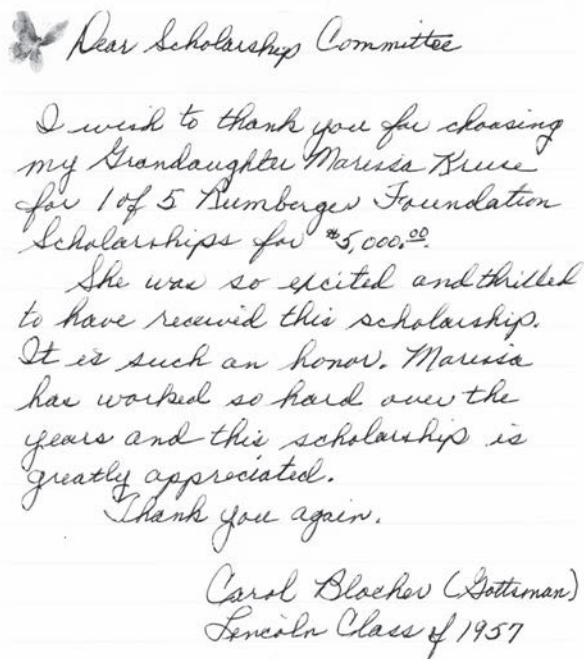 Dear Scholarship Committee
I wish to thank you for choosing
my Grandaughter Marissa Kruse
for 1 of 5 Rumberger Foundation
Scholarships for $5,000.00.
She was so excited and thrilled
to have received this scholarship.
It is such an honor. Marissa
has worked so hard over the
years and this scholarship is
greatly appreciated.
Thank you again.
Carol Blocher (Gottsman)
Lincoln Class of 1957